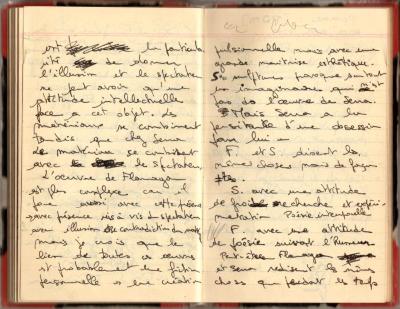 est la particula
rité de donner
l'illusion et le spectateur
ne peut avoir qu'une
attitude intellectuelle
face a cet objet. Les
matériaux se combinent
tandis que chez Serra
le matériau se combine
avec le spectateur.
L'oeuvre de Flanagan
est plus complexe car il
joue aussi avec
avec présence vis à vis du spectateur
avec illusion contradiction du
mais je crois que le
lien de toutes ces oeuvres
est probablement une fiction
personnelle une création
pulsionnelle mais avec une
grande maitrise esthétique.
Ses sculptures presque surtout
un imaginaire que n'est
pas do l'oeuvre de Serra.
Mais Serra a la
persistante d'une obsession
F. et S. disent les
mêmes choses mais de façon
S. avec une attitude
de recherche et expéri-
mentation Poésie intemporelle
F. avec une attitude
de poésie suivant l'humeur
Peut-être Flanagan
et Serra redisent la même
chose que pendant les temps